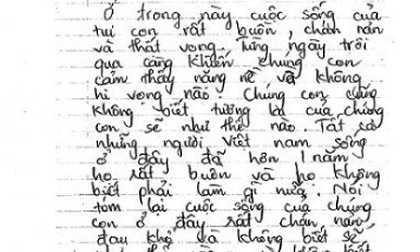 Ở trong này cuộc sống của
tụi con rất buồn, chán nản
và thất vọng. từng ngày trôi
qua càng khiến chúng con
cảm thấy nặng nề và không
hi vọng nào. Chúng con cũng
không biết tương lai của chúng
con sẽ như thế nào. Tất cả
những người Việt nam sống
ở đây đã hơn 1 năm
họ rất buồn và họ không
biết phải làm gì nữa. Nói
tóm lại cuộc sống của chúng
con ở đây rất chán nản,
đau khổ và không biết sẽ